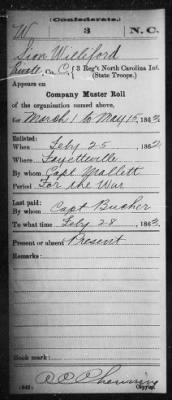 (Confederate.)
W 3 N.C.
Sion Williford
Private, Co. C, 3 Reg't North Carolina Inf.
(State Troops.)
Appears on
Company Muster Roll
of the organization named above,
for March 1 to May 15, 1863
Enlisted:
When Feby 25, 1862
Where Fayetteville
By whom Capt Mallett
Period For the War
Last paid:
By whom Capt Bucher
To what time Feby 28, 1863
Present or absent Present
Remarks:
Book mark:
(642)
Copyist.